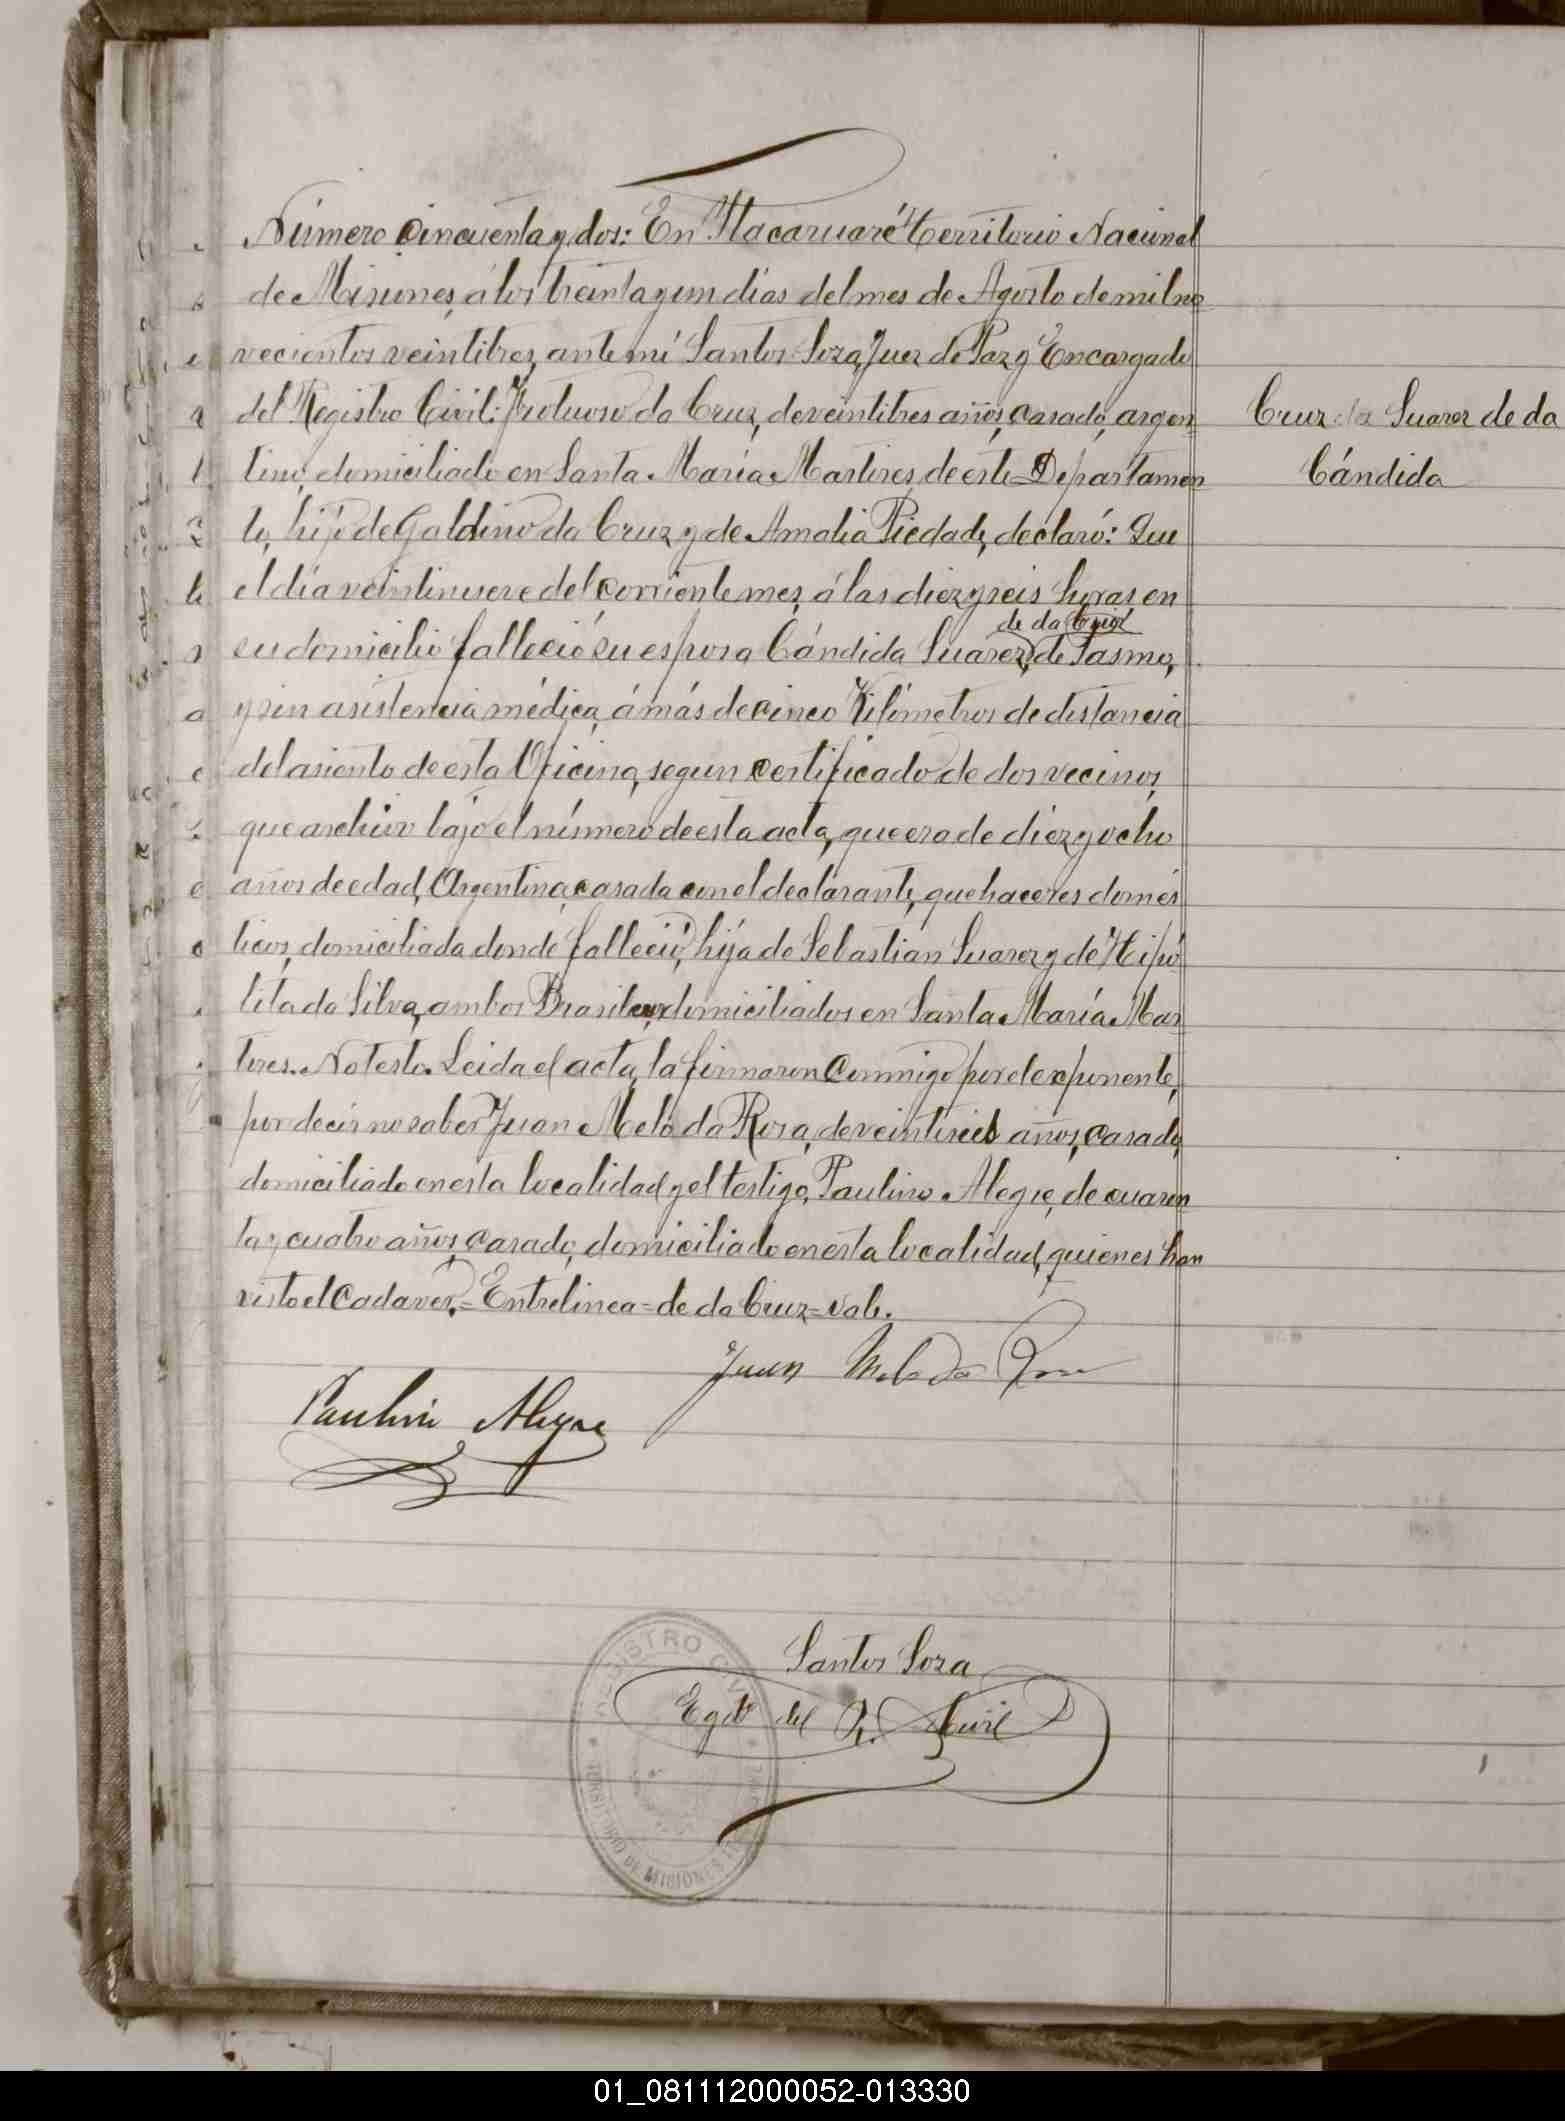 Número Cincuenta y dos: En Itacaruaré Territorio Nacional
de Misiones, á los treinta y un días del mes de Agosto de mil no
vecientos veintitres, ante mí Santos Soza, Juez de Paz y Encargado
del Registro Civil: Frutuoso da Cruz, de veintitres años, casado, argen
Cruz Suarez de da
tino, domiciliado en Santa María Martires de este Departamen
Cándida
to, hijo de Galdino da Cruz y de Amalia Piedade, declaró: Que
el día veintinueve del corriente mes, á las diez y seis horas en
de da Cruz
su domicilio falleció su esposa Cándida Suarez, de Pasmo,
y sin asistencia médica, á más de cinco Kilómetros de distancia
del asiento de esta Oficina, segun certificado de dos vecinos,
que archivo bajo el número de esta acta, que era de diez y ocho
años de edad, Argentina, casada con el declarante, quehaceres domés
ticos, domiciliada donde falleció, hija de Sebastian Suarez y de Hipó
lita da Silva, ambos domiciliados en Santa María Mar
tires. No testo. Leida el acta, la firmaron Conmigo por el exponente,
por decir no saber Juan Melo da Rosa, de veintiseis años, casado,
domiciliado en esta localidad y el testigo, Paulino Alegre, de cuaren
ta y cuatro años, casado, domiciliado en esta localidad, quienes han
visto el Cadaver.= Entrelinea = de da Cruz = vale.
Juan Melo da Rosa
Paulino Alegre
REGISTRO CIVIL
Santos Soza
Egdo del R. Civil
TERRITORIO DE MISIONES
01_081112000052-013330